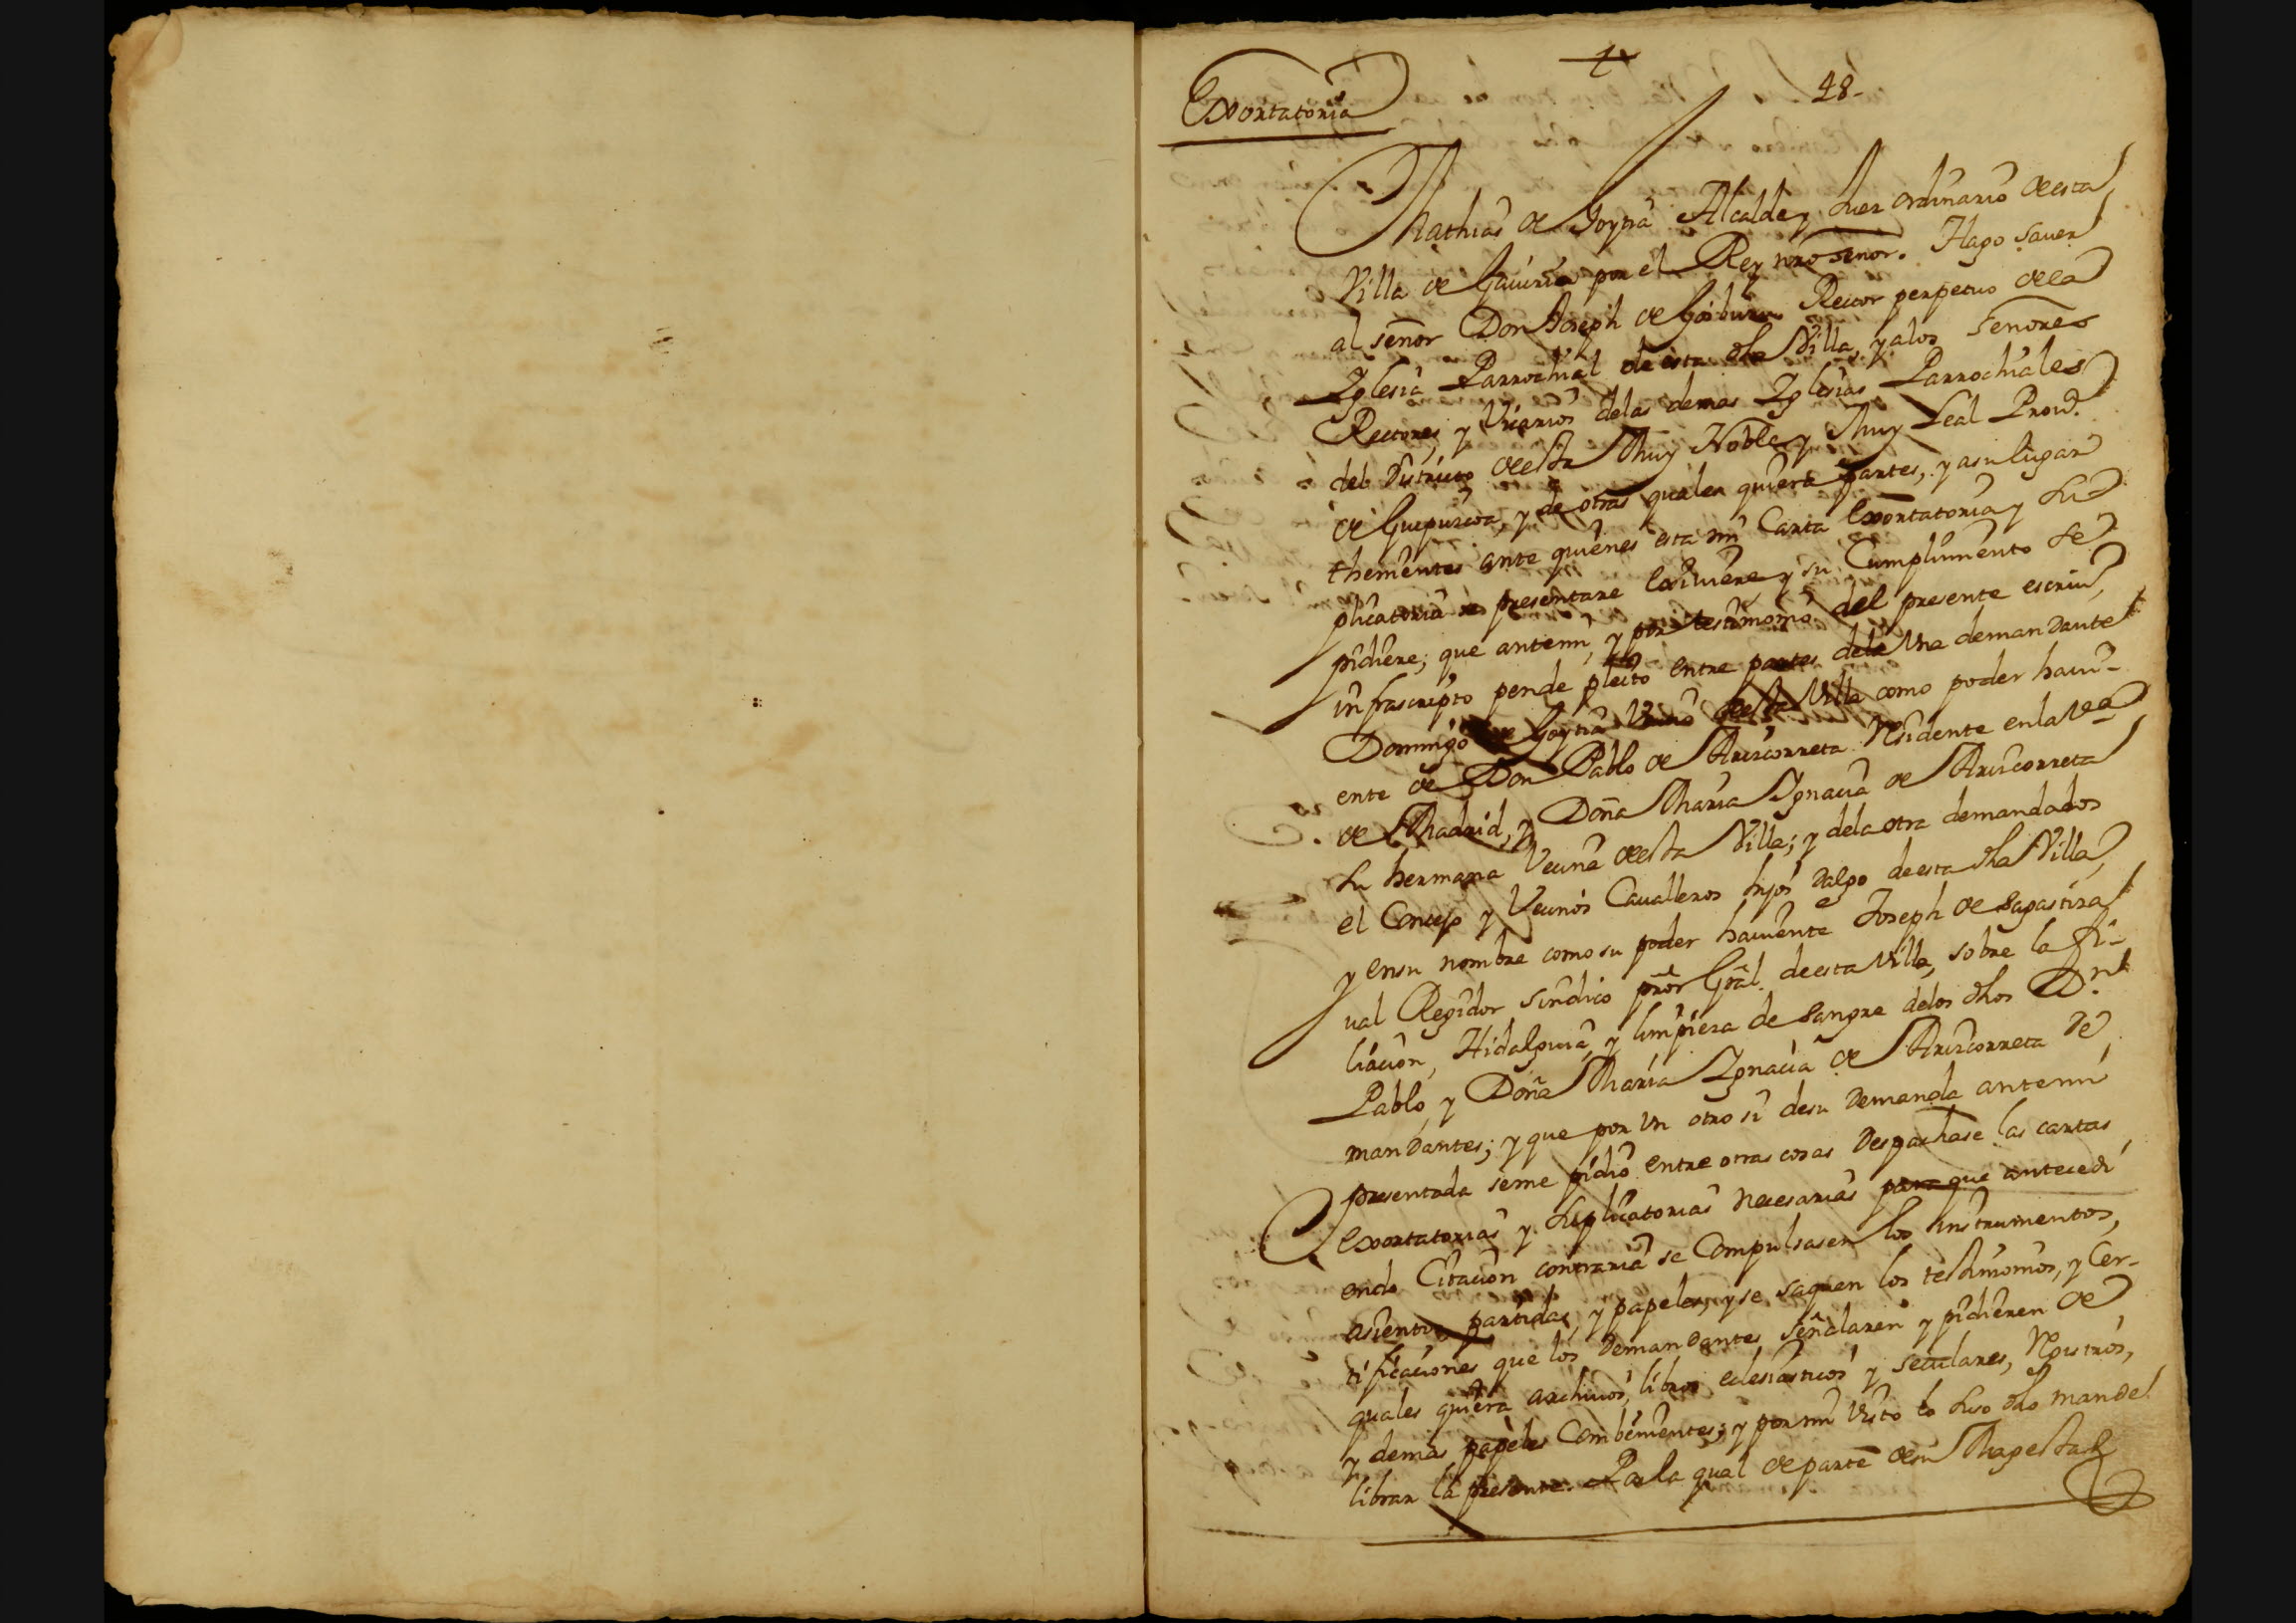 Exortatoria
48-
Mathias de Goytia Alcalde y Juez ordinario de esta
Villa de Gaviria por el Rey nr̃o señor. Hago saver
al señor Don Joseph de Rector perpetuo de la
Iglesia Parrochial de esta dha Villa, y alos señores
Rectores, y Vicarios delas demas Iglesias Parrochiales
del Distrito de esta Muy Noble y Muy Leal Prov.ª
de Guipuzcoa, y de otras quales quiera partes, y asu lugar
thenientes ante quienes esta mi Carta exortatoria y Su
plicatoria se presentare y su Cumplimento se
pidiere, que antemi, y por testimonio del presente escriv.º
infrascripto pende pleito entre partes dela Una demandante
Domingo de Goytia Vecino de esta Villa como poder havi-
ente de Don Pablo de Aruicorreta residente en la Vª
de Madrid, y Doña Maria Ignacia de Aruicorreta
su hermana Vecina de esta Villa; y dela otra demandados
el Concejo y Vecinos Cavalleros hijos dalgo de esta dha Villa,
y ensu nombre como su poder haviente Joseph de Sagastiza
val Regidor sindico pror Gral. de esta Villa, sobre la fi-
liacion, Hidalguia, y limpieza de sangre delos dhos Dn.
Pablo, y Doña Maria Ignacia de Aruicorreta de
mandantes; y que por un otro si desu demanda antemi
presentada seme pidio entre otras cosas Despachase las cartas
exortatorias y suplicatorias necesarias para que antecedi
endo Citacion contraria se Compulsasen los instrumentos,
asientos partidas, y papeles, y se saquen los testimonios, y Cer-
tificaciones que los demandantes señalaren y pidieren de
quales quiera archivos, libros eclesiasticos y seculares, registros,
y demas papeles Combenientes; y por mi Visto lo suso dho mande
librar la presente. Por la qual de parte desu Magestad